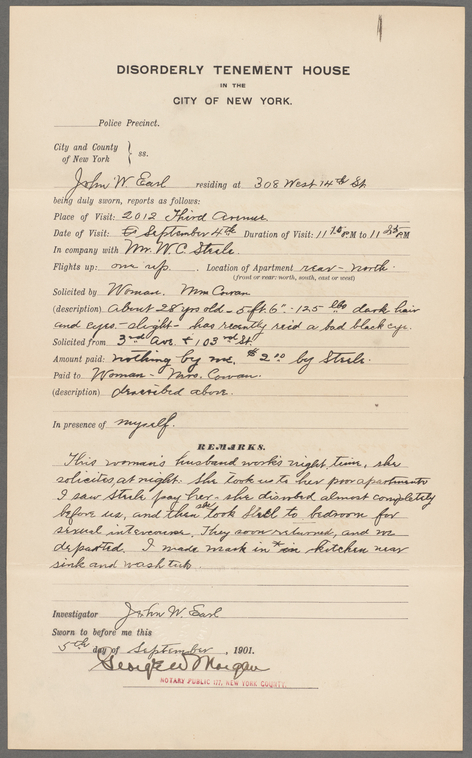 DISORDERLY TENEMENT HOUSE
IN THE
CITY OF NEW YORK.
Police Precinct.
City and County
of New York } ss.
John W Earl residing at 308 West 14th St
being duly sworn, reports as follows:
Place of Visit: 2012 Third Avenue
Date of Visit: September 4th Duration of Visit: 11 P.M to 11 P.M
In company with Mr. W.C. Steele.
Flights up: one up. Location of Apartment rear - north.
(front or rear: north, south, east or west)
Solicited by Woman. Mrs Cowan
(description) about 28 yrs old - 5 ft. 6" - 125 lbs dark hair
and eyes - slight - has recently had a bad black eye.
Solicited from 3rd Ave. + 103rd St.
Amount paid: nothing by me. $2.00 by Steele.
Paid to Woman - Mrs. Cowan.
(description) described above.
In presence of myself.
REMARKS.
This woman's husband works night time, she
solicites at night. She took us to her poor apartments
I saw Steele pay her - she disrobed almost completely
before us, and then she took Steele to bedroom for
sexual intercourse. They soon returned, and we
departed. I made mark in * in kitchen near
sink and wash tub.
Investigator John W. Earl
Sworn to before me this
5th day of September, 1901.
George W Morgan
NOTARY PUBLIC 177, NEW YORK COUNTY.